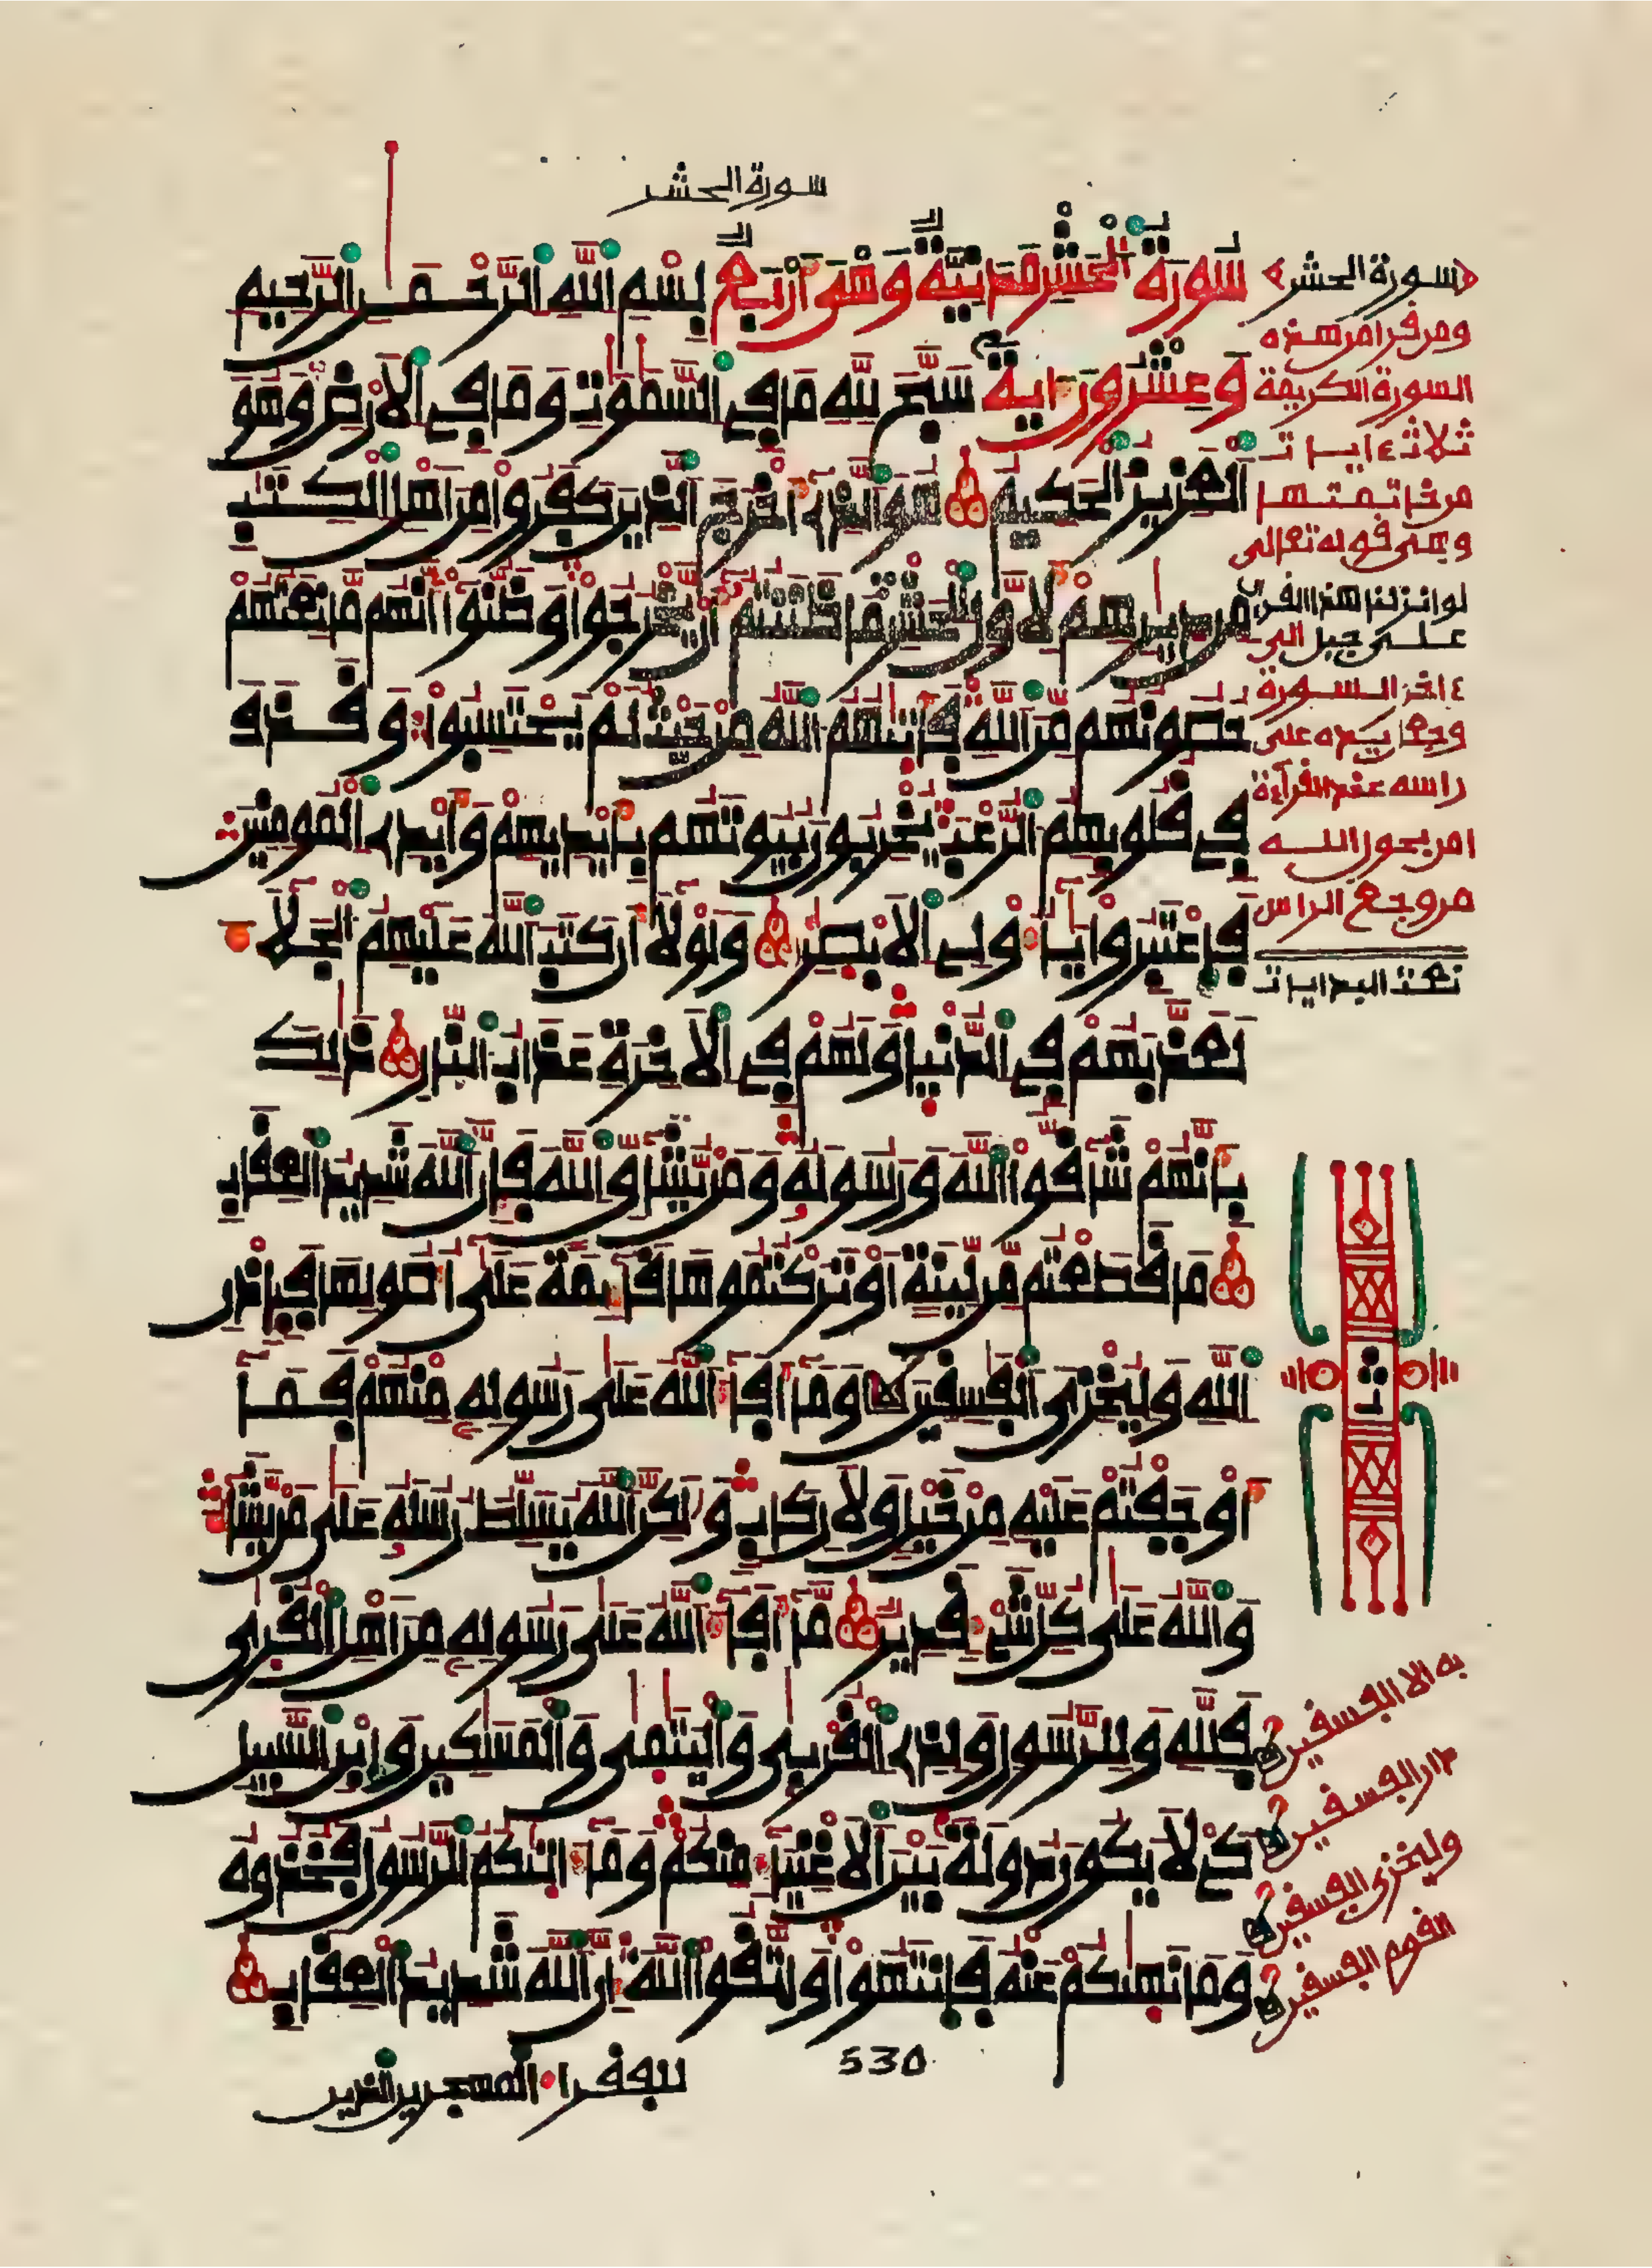 سورة الحشر
سُورَةُ الْحَشْرِ مَدَنِيَّةٌ وَهْىَ أَرْبَعٌ بِسْمِ اللَّهِ الرَّحْمَٰنِ الرَّحِيمِ
وَعِشْرُونَ ءَايَةً سَبَّحَ لِلَّهِ مَا فِي السَّمَٰوَٰتِ وَمَا فِي الْأَرْضِ وَهُوَ
الْعَزِيزُ الْحَكِيمُ هُوَ الَّذِي أَخْرَجَ الَّذِينَ كَفَرُوا مِنْ أَهْلِ الْكِتَٰبِ
مِن دِيَٰرِهِمْ لِأَوَّلِ الْحَشْرِ مَا ظَنَنتُمْ أَن يَخْرُجُوا وَظَنُّوا أَنَّهُم مَّانِعَتُهُمْ
حُصُونُهُم مِّنَ اللَّهِ فَأَتَىٰهُمُ اللَّهُ مِنْ حَيْثُ لَمْ يَحْتَسِبُوا وَقَذَفَ
فِي قُلُوبِهِمُ الرُّعْبَ يُخْرِبُونَ بُيُوتَهُم بِأَيْدِيهِمْ وَأَيْدِي الْمُومِنِينَ
فَاعْتَبِرُوا يَٰأُولِي الْأَبْصَٰرِ وَلَوْلَا أَن كَتَبَ اللَّهُ عَلَيْهِمُ الْجَلَاءَ
لَعَذَّبَهُمْ فِي الدُّنْيَا وَلَهُمْ فِي الْأَخِرَةِ عَذَابُ النَّارِ ذَٰلِكَ
بِأَنَّهُمْ شَاقُّوا اللَّهَ وَرَسُولَهُ وَمَن يُّشَاقِّ اللَّهَ فَإِنَّ اللَّهَ شَدِيدُ الْعِقَابِ
مَا قَطَعْتُم مِّن لِّينَةٍ أَوْ تَرَكْتُمُوهَا قَائِمَةً عَلَىٰ أُصُولِهَا فَبِإِذْنِ
اللَّهِ وَلِيُخْزِيَ الْفَٰسِقِينَ وَمَا أَفَاءَ اللَّهُ عَلَىٰ رَسُولِهِ مِنْهُمْ فَمَا
أَوْجَفْتُمْ عَلَيْهِ مِنْ خَيْلٍ وَلَا رِكَابٍ وَلَٰكِنَّ اللَّهَ يُسَلِّطُ رُسُلَهُ عَلَىٰ مَن يَّشَاءُ
وَاللَّهُ عَلَىٰ كُلِّ شَيْءٍ قَدِيرٌ مَّا أَفَاءَ اللَّهُ عَلَىٰ رَسُولِهِ مِنْ أَهْلِ الْقُرَىٰ
فَلِلَّهِ وَلِلرَّسُولِ وَلِذِي الْقُرْبَىٰ وَالْيَتَٰمَىٰ وَالْمَسَٰكِينِ وَابْنِ السَّبِيلِ
كَيْ لَا يَكُونَ دُولَةً بَيْنَ الْأَغْنِيَاءِ مِنكُمْ وَمَا ءَاتَىٰكُمُ الرَّسُولُ فَخُذُوهُ
وَمَا نَهَىٰكُمْ عَنْهُ فَانتَهُوا وَاتَّقُوا اللَّهَ إِنَّ اللَّهَ شَدِيدُ الْعِقَابِ
530
للفقراء المهجرين الذين
سورة الحشر
ومن قرأ من هذه
السورة الكريمة
ثلاث ءايات
من خاتمتها
وهي قوله تعالى
لو انزلنا هذا القرءان
على جبل الى
ءاخر السورة
وجعل يده على
راسه عند القراءة
امن بعون الله
من وجع الراس
ث
به الا الفسقين
دار الفسقين
وليخزي الفسقين
القوم الفسقين